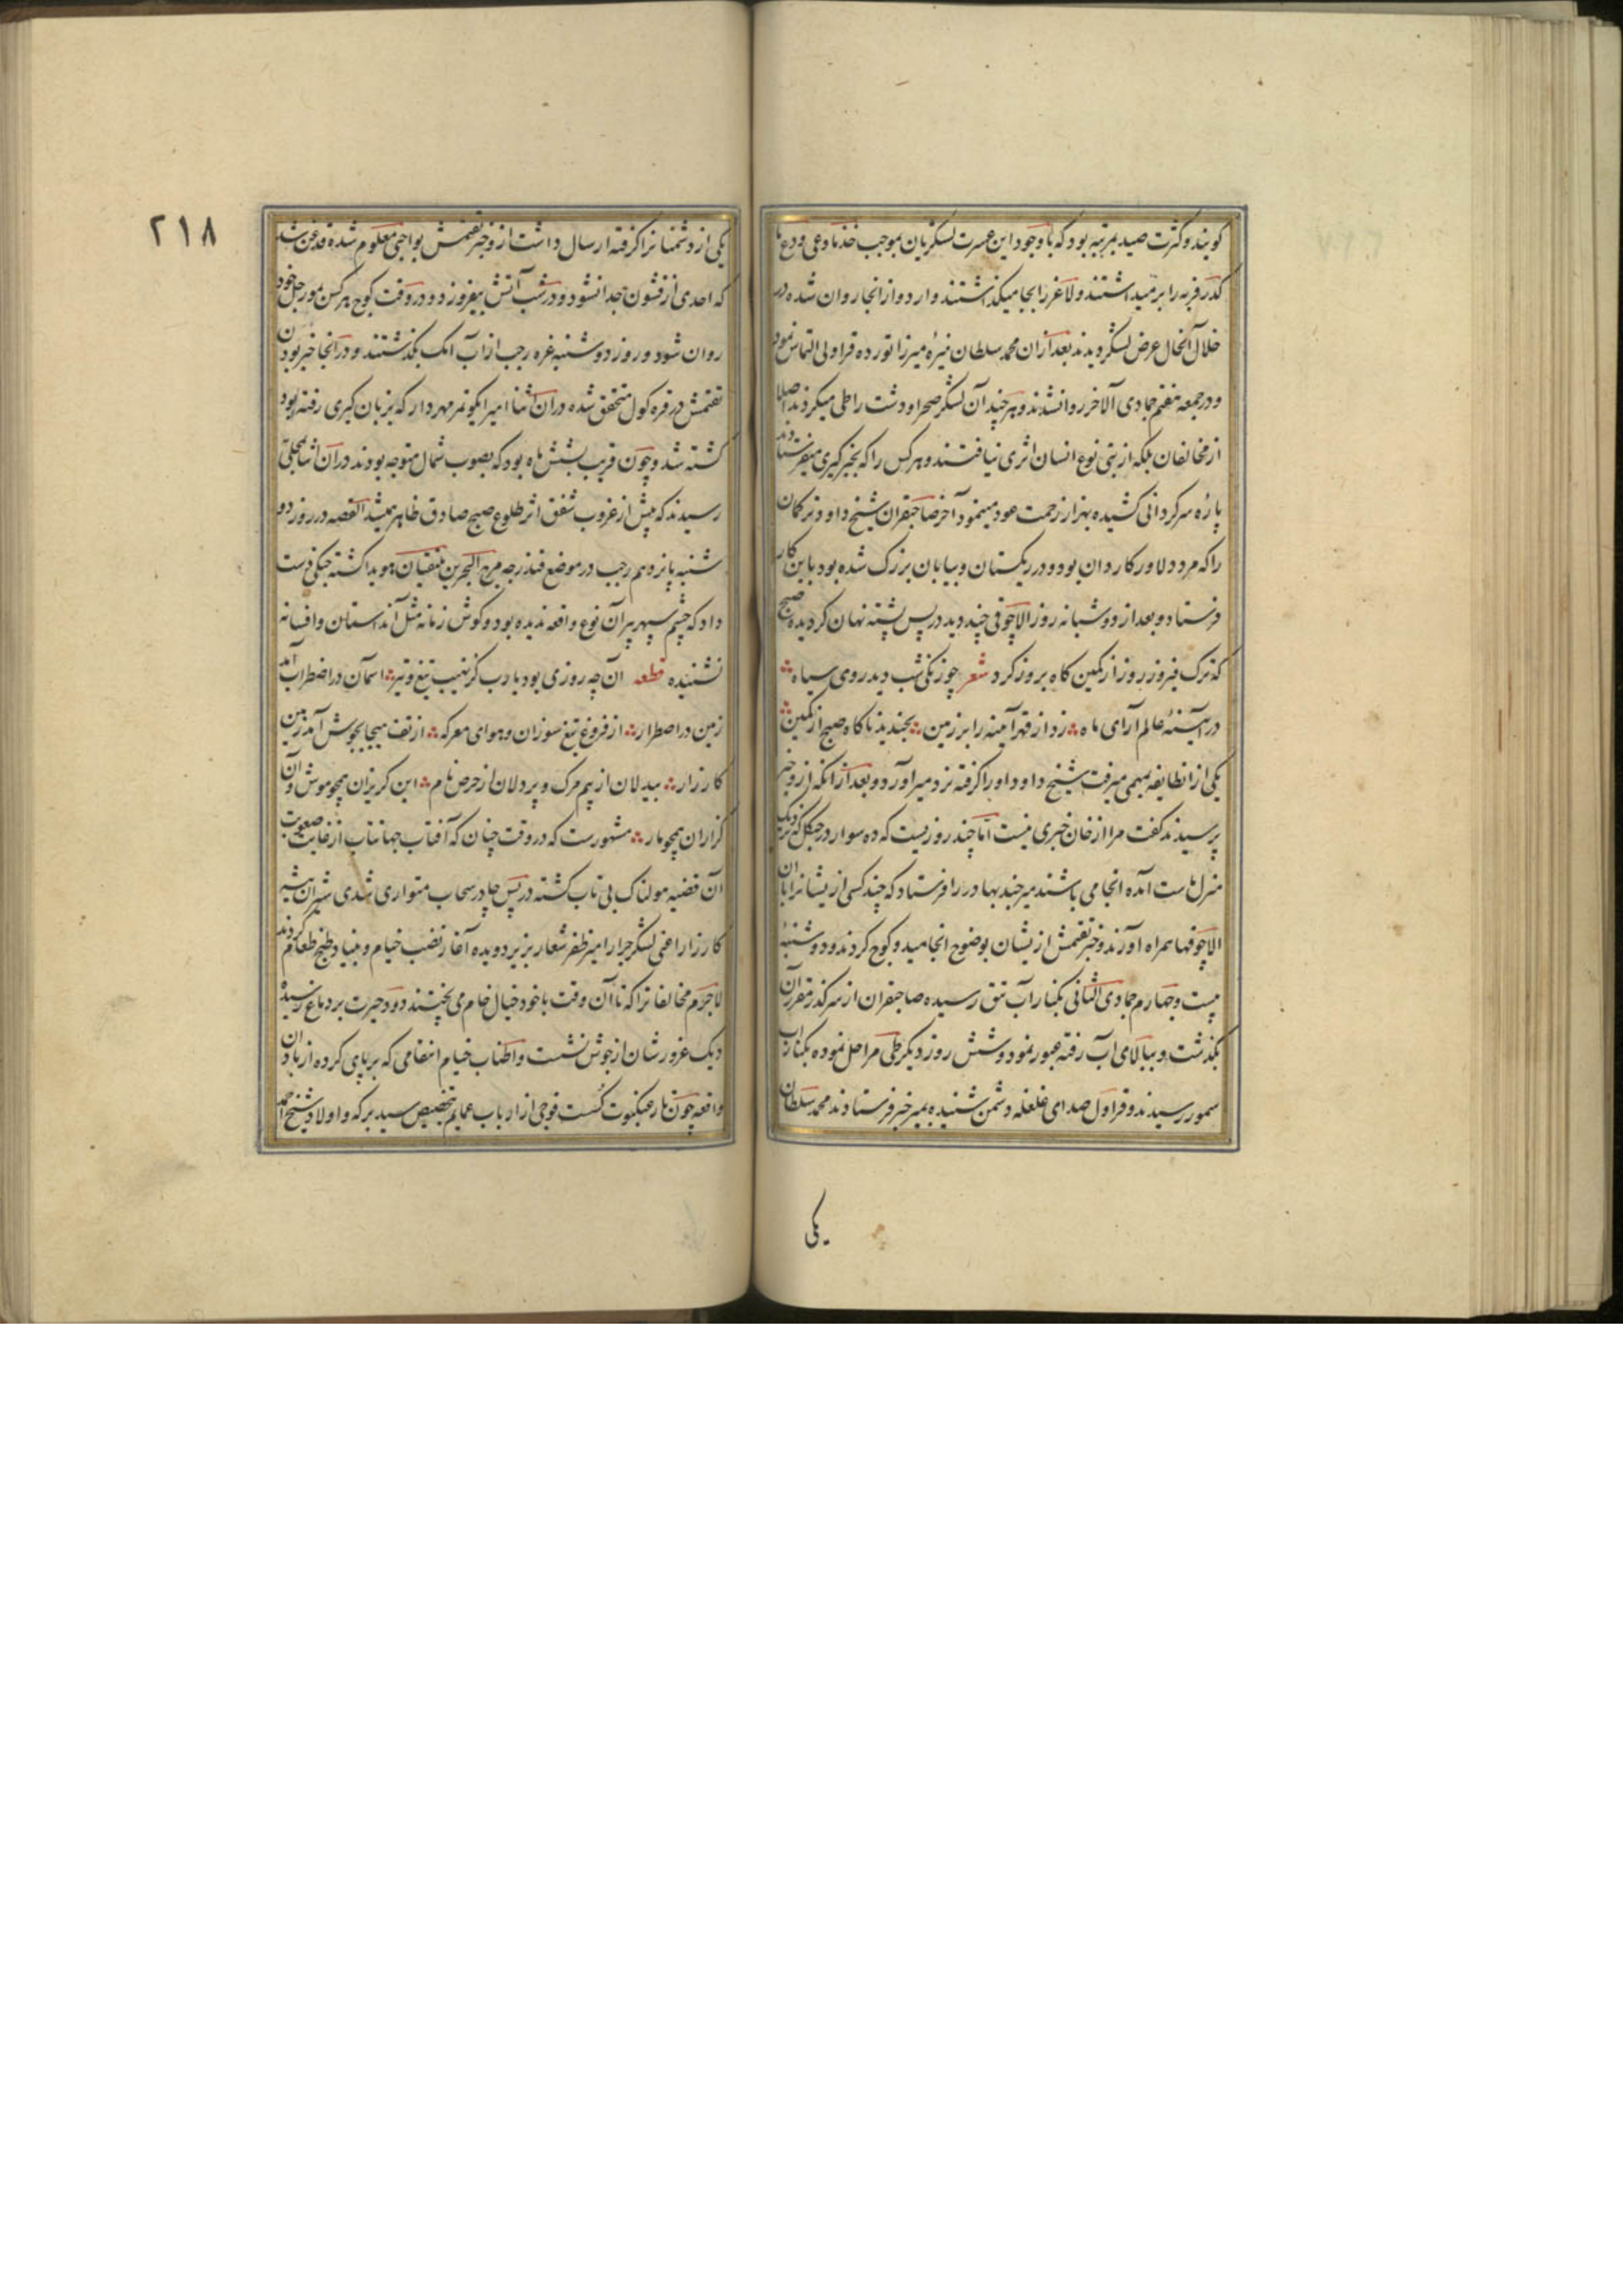 گویند و کثرت صید بمرتبه بود که با وجود این عسرت لشکریان بموجب خذ ما صفی ودع ما
کدر فربه را برمیداشتند و لاغر را بجا میگذاشتند و اردو از انجا روان شده در
خلال آنحال عرض لشکر دیدند بعد ازان محمد سلطان نبیرهٔ میرزا تورده قراولی التماس نمود
و در جمعه هفتم جمادی الآخر روانشدند و هر چند آن لشکر صحرا و دشت را طی میکردند اصلا
از مخالفان بلکه از بنی نوع انسان اثری نیافتند و هر کس را که بخبرگیری میفرستادند
پارهٔ سرکردانی کشیده بهزار زحمت عود مینمود آخر صاحبقران شیخ داود ترکمان
را که مرد دلاور کاردان بود و در ریکستان و بیابان بزرک شده بود باین کار
فرستاد و بعد از دو شبانه روز الاچوقی چند دید در پس پشته نهان کردیده صبح
که ترک فیروز روز از کمین کاه بروز کرد شعر چو زنکی شب دید روی سیاه
در آیینهٔ عالم آرای ماه زد از قهر آینه را بر زمین بخندید ناکاه صبح از کمین
یکی از انطایفه بمهمی میرفت شیخ داود او را کرفته نزد میر آورد و بعد از انکه از و خبر
پرسیدند کفت مرا از خان خبری نیست اما چند روزیست که ده سوار در جنکل که نزدیک
منزل ماست آمده انجا می باشند میر چند بهادر را فرستاد که چند کسی از یشانرا با ان
الاچوقها همراه آورند و خبر تقتمش از یشان بوضوح انجامید و کوچ کردند و دوشنبهٔ
بیست و چهارم جمادی الثانی بکنار آب تنق رسیده صاحبقران از سر کذر مقرر آن
بکذشت و ببالای آب رفته عبور نمود و شش روز دیکر طی مراحل نموده بکنار اب
سمور رسیدند و قراول صدای غلغله دشمن شنیده بمیر خبر فرستادند محمد سلطان
یکی
٢١٨
یکی از دشمنانرا کرفته ارسال داشت از و خبر تقتمش بواجبی معلوم شده قدغن شد
که احدی از قشون جدا نشود و در شب آتش نیفروزد و در وقت کوچ هر کس بمورچل خود
روان شود و روز دوشنبه غره رجب از اب ایک بکذشتند و در انجا خبر بودن
تقتمش در قره کول متحقق شده دران اثنا امیر ایکو تمر مهردار که بزبان کیری رفته بود
کشته شد و چون قریب بشش ماه بود که بصوب شمال متوجه بودند دران اثنا بمحلی
رسیدند که پیش از غروب شفق اثر طلوع صبح صادق ظاهر میشد القصه در روز دو
شنبه پانزدهم رجب در موضع قندزجه مرج البحرین یلتقیان هویدا کشته جنکی دست
داد که چشم سپهر پیر آن نوع واقعه ندیده بود و کوش زمانه مثل آن داستان و افسانه
نشنیده قطعه آن چه روزی بود یا رب کز نهیب تیغ و تیر اسمان در اضطراب آمد
زمین در اضطرار از فروغ تیغ سوزان و هوای معرکه از تف هیجا بجوش آمد زمین
کارزار بیدلان از بیم مرک و پردلان از حرص نام این کریزان همچو موش و آن
کزاران همچو مار مشهورست که در وقت چنان که آفتاب جهانتاب از غایت صعوبت
آن قضیه هولناک بی تاب کشته در پس چادر سحاب متواری شدی شیران بیشه
کارزار اعنی لشکر جرار امیر ظفر شعار بزیر دویده آغاز نصب خیام و بنیاد طبخ طعام کردند
لاجرم مخالفانرا که تا آن وقت با خود خیال خام می پختند دود حیرت بر دماغ رسیده
دیک غرورشان از جوش نشست و اطناب خیام انتقامی که بر پای کرده از باد ان
واقعه چون تار عنکبوت کسست فوجی از ارباب عمایم بتخصیص سید برکه و اولاد شیخ احمد